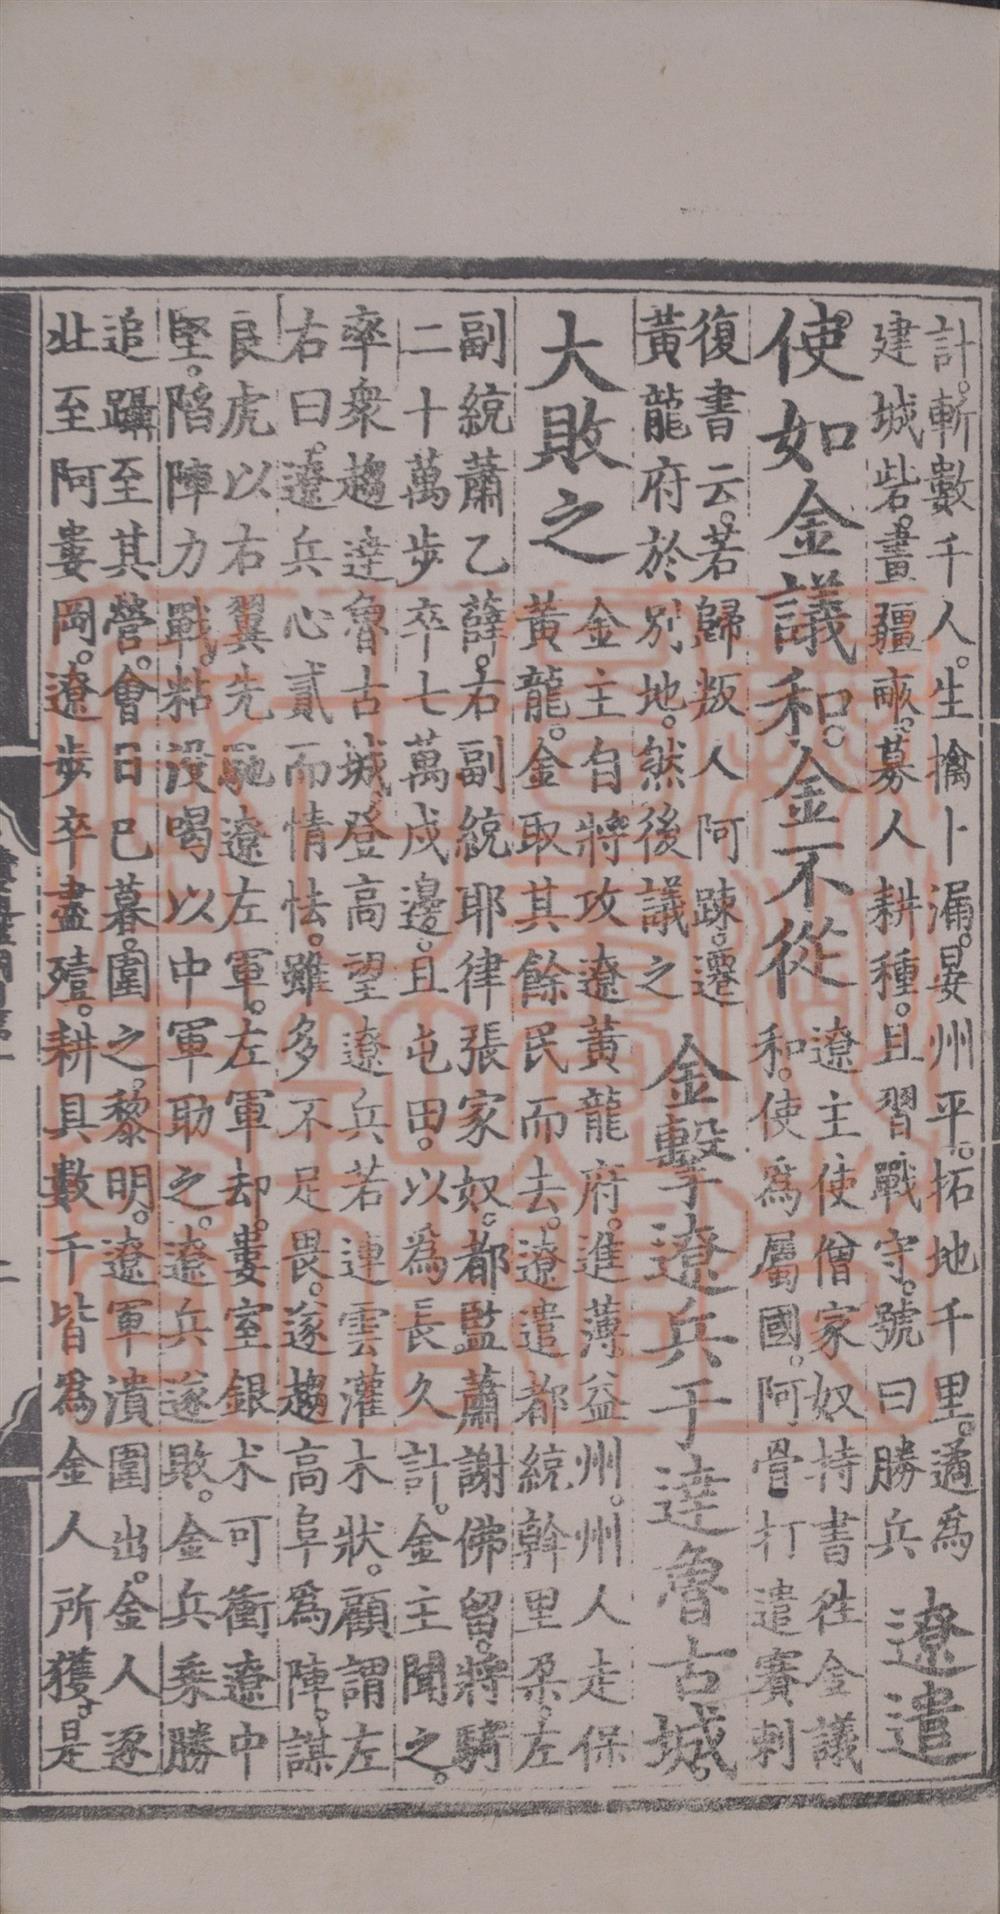 計。斬數千人。生擒卜漏。晏州平。拓地千里。遹爲
建城砦。畫疆畝。募人耕種。且習戰守。號曰勝兵
遼遣
使如金議和。金不從
遼主使僧家奴持書徃金議
和。使爲屬國。阿骨打遣賽剌
復書云。若歸叛人阿踈。遷
黃龍府於别地。然後議之
金擊遼兵于達魯古城。
大敗之
金主自將攻遼黃龍府。進薄益州。州人走保
黃龍。金取其餘民而去。遼遣都統斡里朶。左
副統蕭乙薛。右副統耶律張家奴。都監蕭謝佛留。將騎
二十萬步卒七萬戍邊。且屯田。以爲長久計。金主聞之。
率衆趨達魯古城。登高望遼兵若連雲灌木狀。顧謂左
右曰。遼兵心貳而情怯。雖多不足畏。遂趨高阜爲陣。謀
良虎以右翼先馳遼左軍。左軍却。婁室銀术可衝遼中
堅。陷陣力戰。粘没喝以中軍助之。遼兵遂敗。金兵乘勝
追躡至其營。會日已暮。圍之。黎明。遼軍潰圍出。金人逐
北至阿婁岡。遼步卒盡殪。耕具數千皆爲金人所獲。是